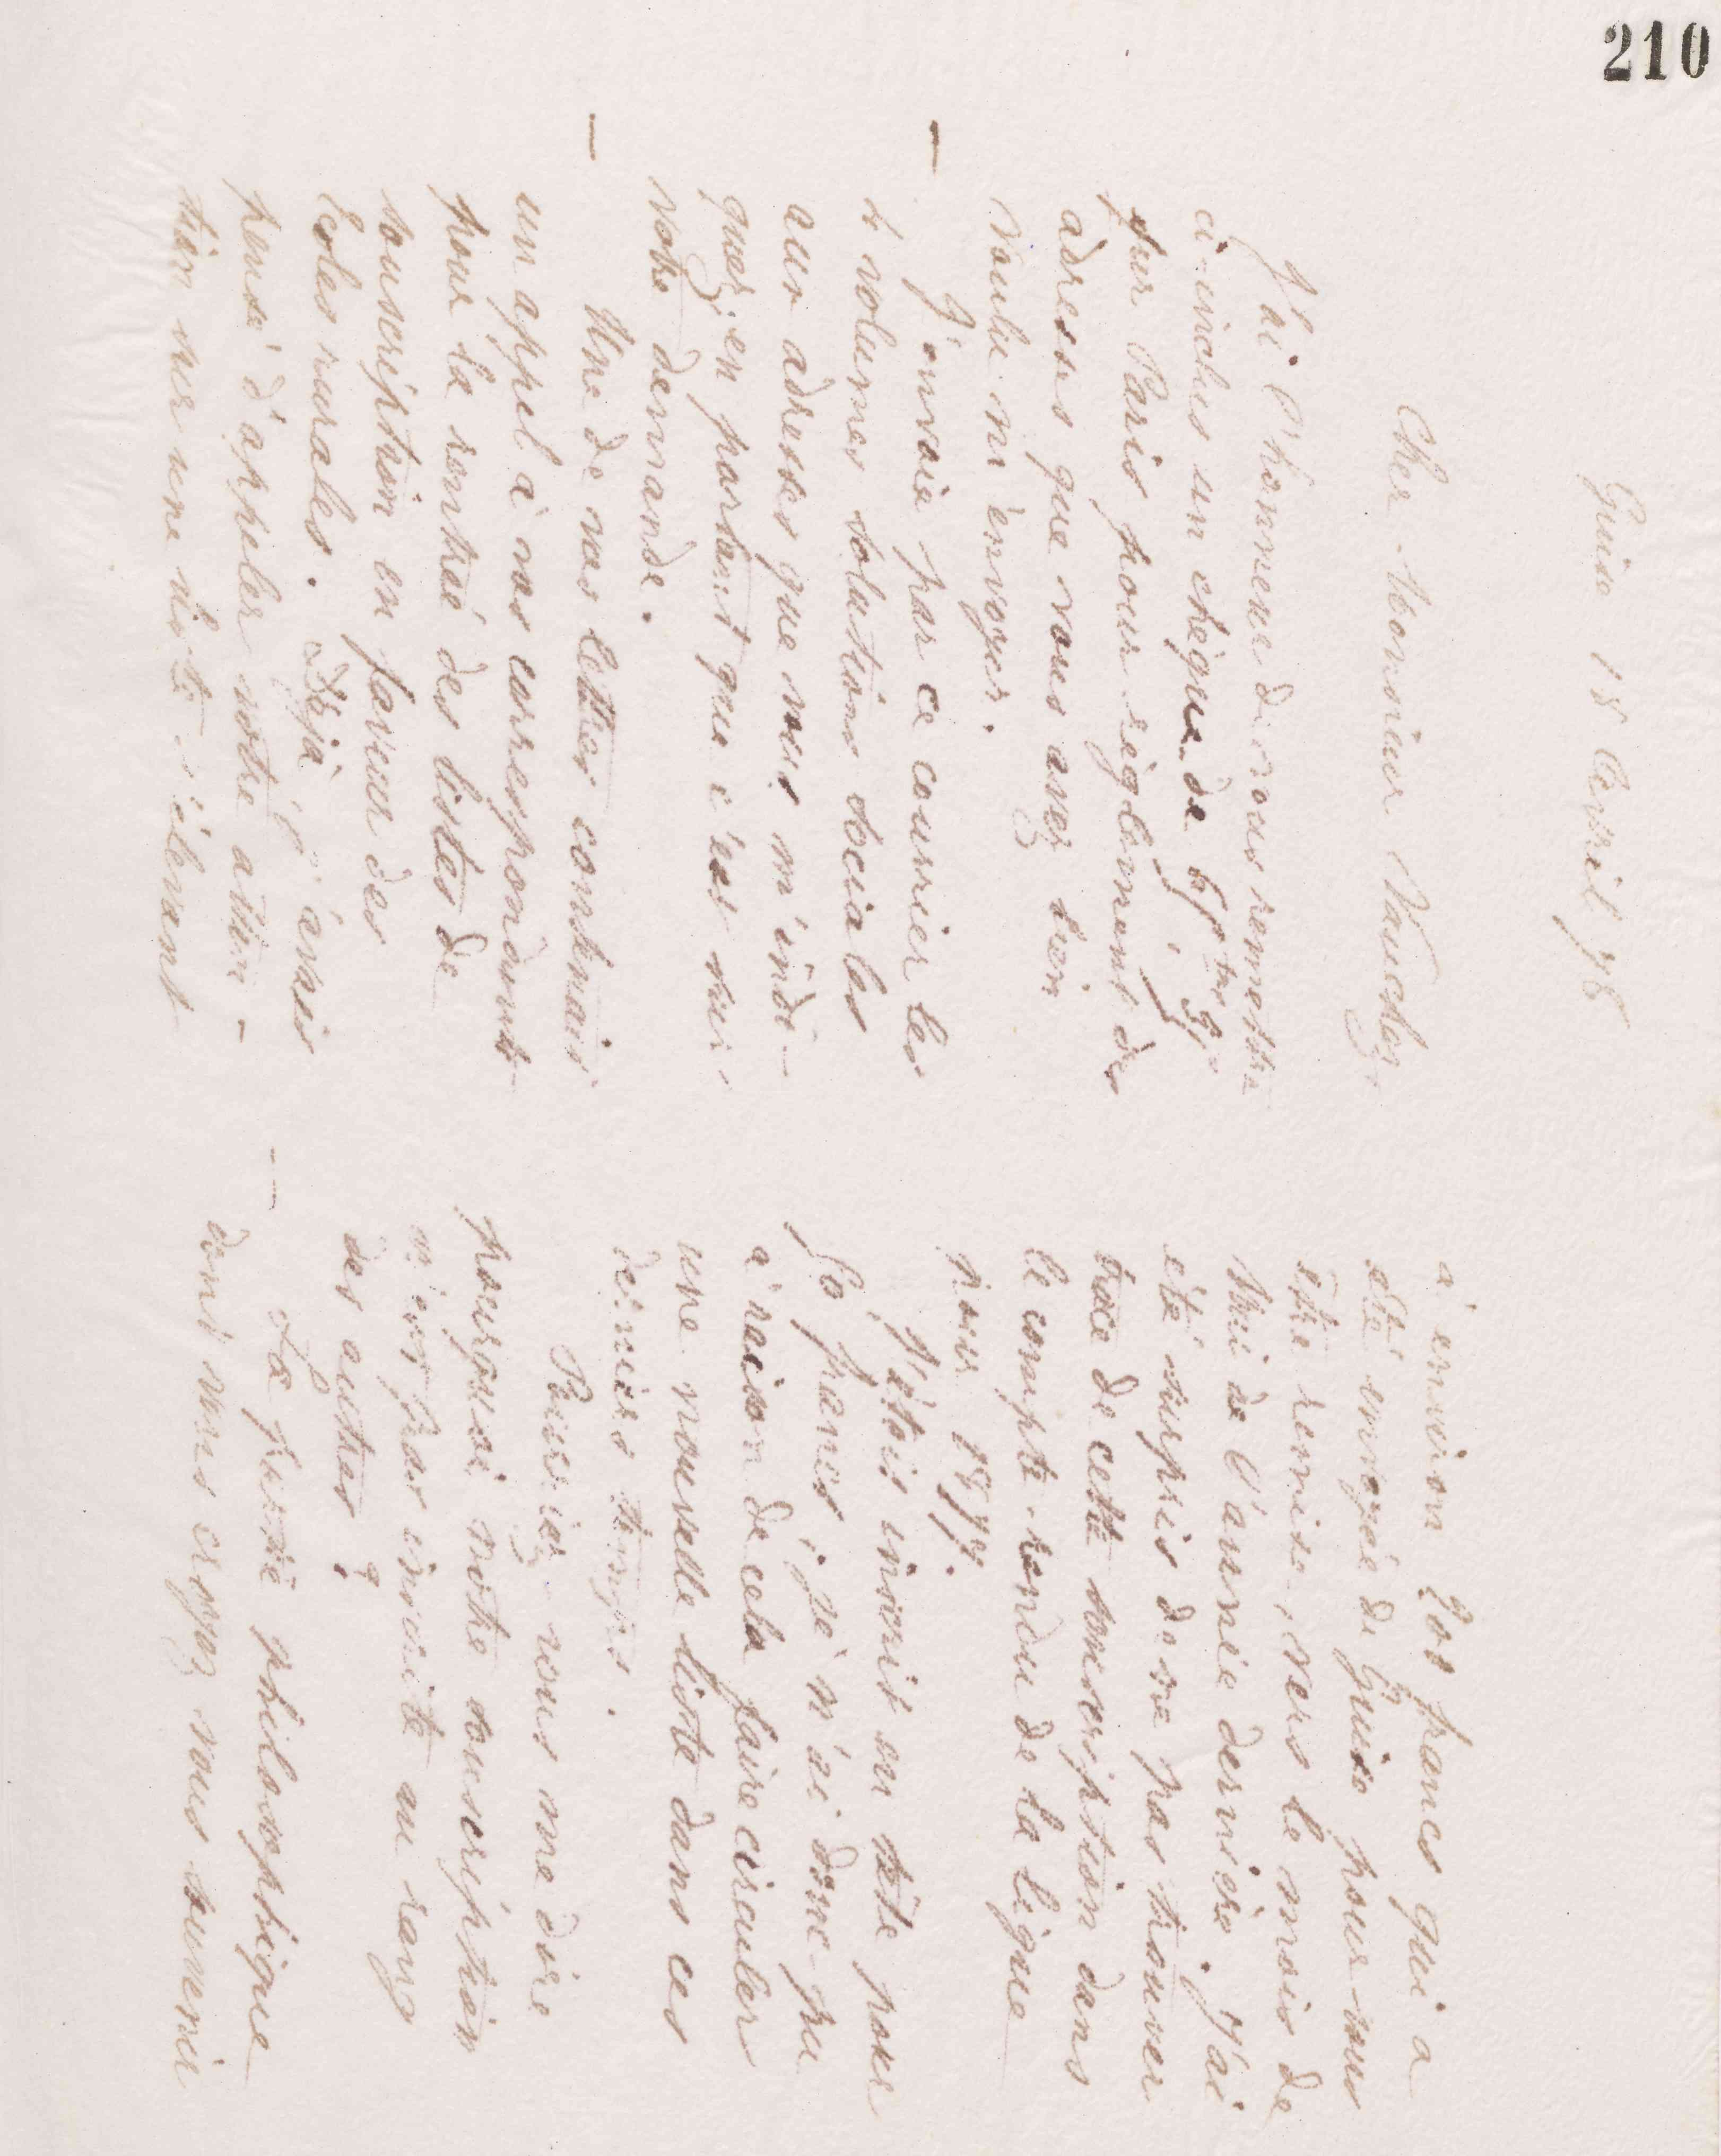 210
Guise 18 Avril 78
Cher Monsieur Vauchez,
J'ai l'honneur de vous remettre
ci-inclus un chèque de
sur Paris pour règlement des
adresses que vous avez bien
voulu m'envoyer.
— J'envoie par ce courrier les
4 volumes solutions sociales
aux adresses que vous m'indi-
quez, en partant que c'est sur
votre demande.
— Une de vos lettres contenait
un appel à vos correspondants
pour la rentrée des listes de
souscription en faveur des
Ecoles rurales. Déjà j'avais
pensé d'appeler votre atten-
tion sur une liste s'élevant
à environ 200 francs qui a
été envoyée de Guise pour vous
être remise, vers le mois de
Mai de l'année dernière. J'ai
été surpris de ne pas trouver
trace de cette souscription dans
le compte-rendu de la ligue
pour 1877.
J'étais inscrit en tête pour
50 francs ; je n'ai donc pu
à raison de cela faire circuler
une nouvelle liste dans ces
derniers temps.
Pourriez-vous me dire
pourquoi notre souscription
n'est pas inscrite au rang
des autres ?
— La pensée philosophique
dont vous croyez vous souvenir